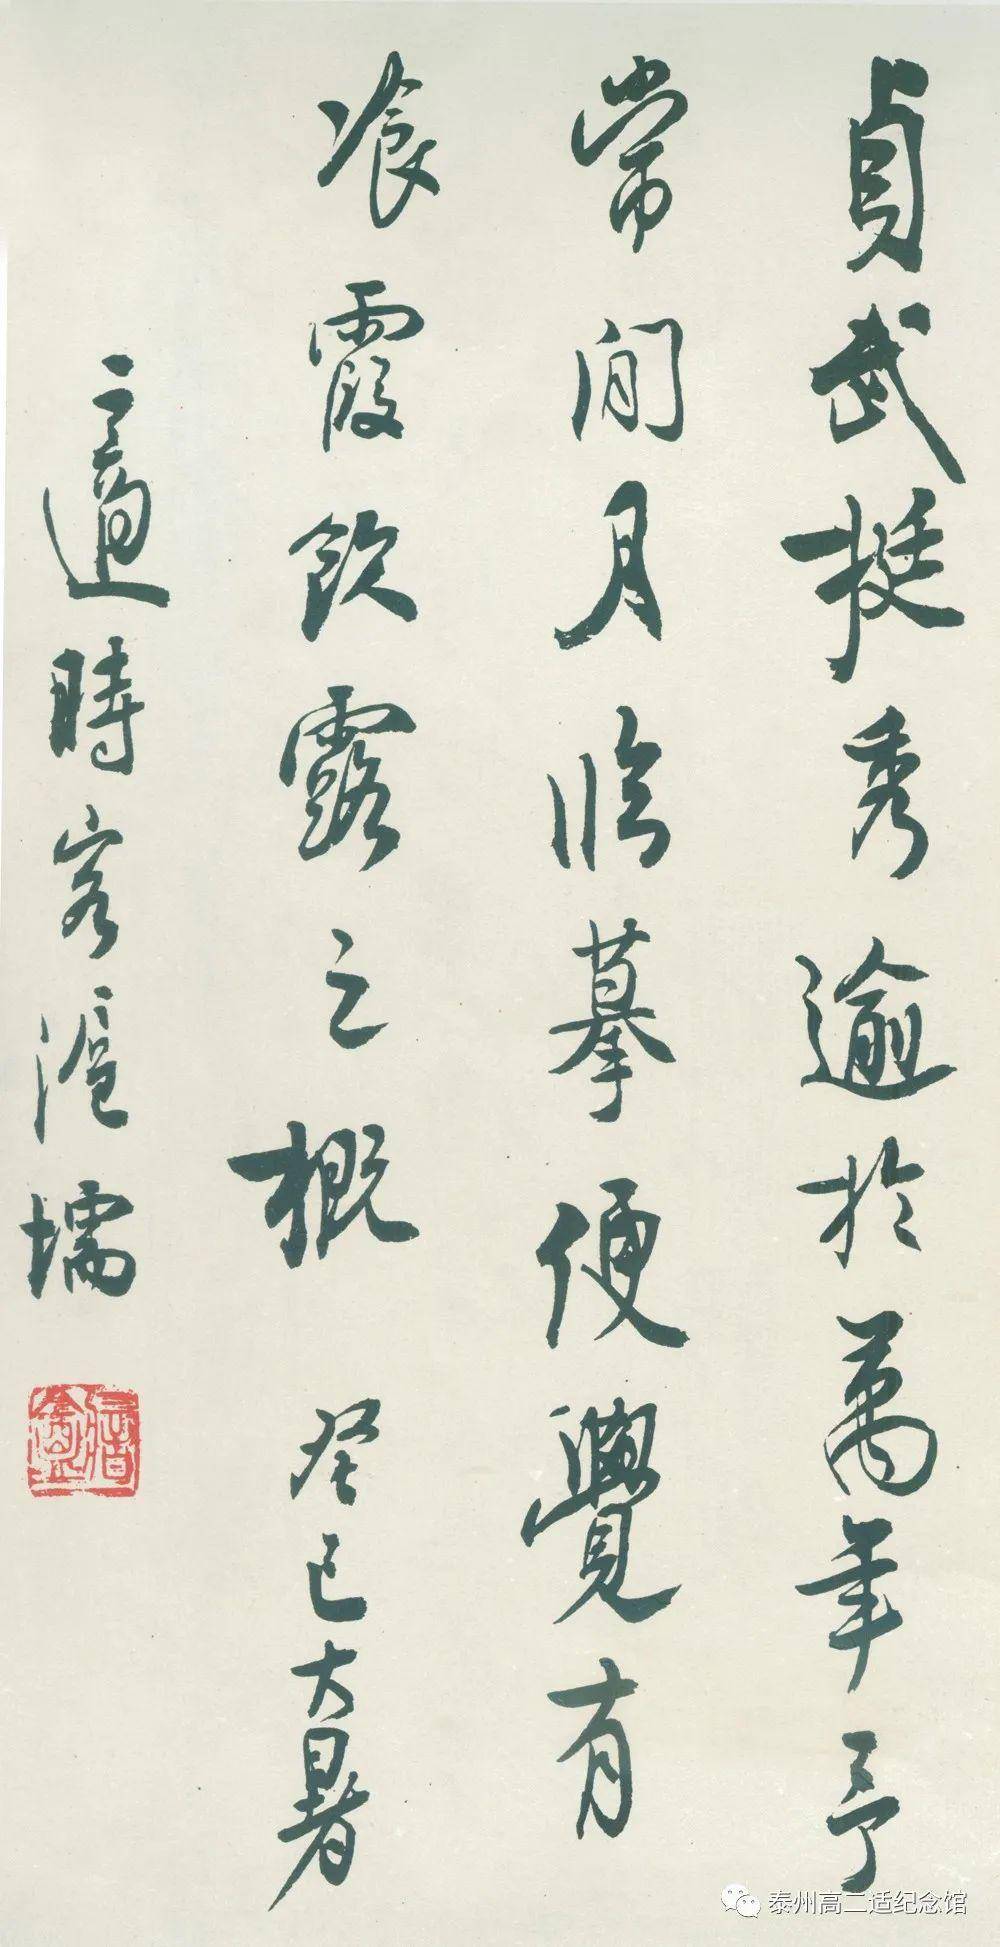 貞武挺秀逾於萬年予
常間月臨摹便覺有
飡霞飲露之概 癸巳大暑
二適時客滬壖
泰州高二适纪念馆